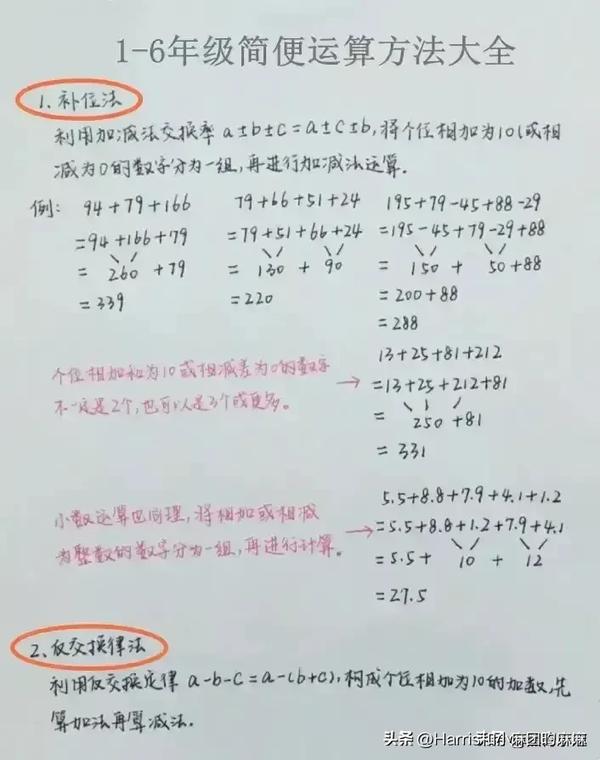 1-6年级简便运算方法大全
1、补位法
利用加减法交换率 a±b±c=a±c±b,将个位相加为10(或相
减为0的数字分为一组,再进行加减法运算.
例: 94+79+166
=94+166+79
= 260 +79
=339
79+66+51+24
=79+51+66+24
= 130 + 90
=220
195+79-45+88-29
=195-45+79-29+88
= 150 + 50+88
=200+88
=288
个位相加和为10或相减差为0的数字
不一定是2个,也可以是3个或更多。
13+25+81+212
=13+25+212+81
= 250 +81
= 331
小数运算也同理,将相加或相减
为整数的数字分为一组,再进行计算。
5.5+8.8+7.9+4.1+1.2
=5.5+8.8+1.2+7.9+4.1
=5.5+ 10 + 12
=27.5
2、反交换律法
利用反交换定律 a-b-c=a-(b+c),构成个位相加为10的加数,先
算加法再算减法.